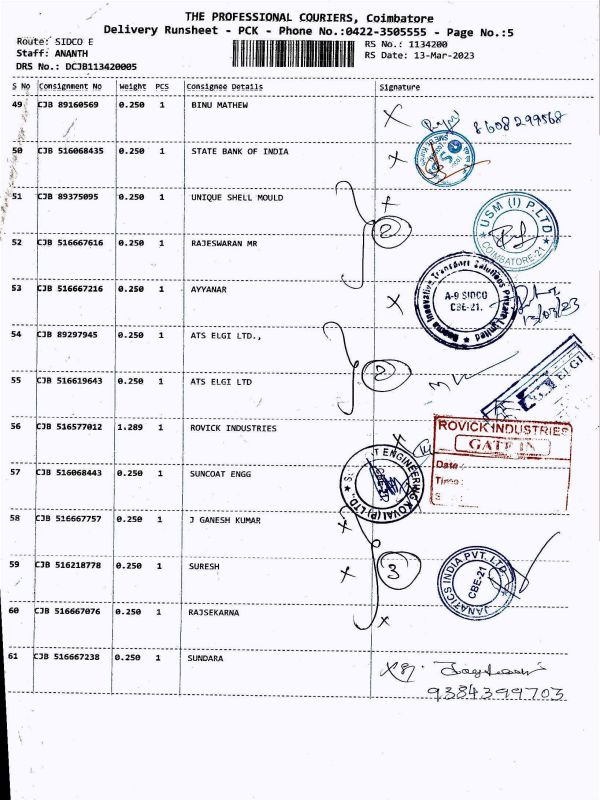 THE PROFESSIONAL COURIERS, Coimbatore
Delivery Runsheet - PCK - Phone No.:0422-3505555 - Page No.:5
Route: SIDCO E
RS No.: 1134200
Staff: ANANTH
RS Date: 13-Mar-2023
DRS No.: DCJB113420005
S No Consignment No Weight PCS Consignee Details Signature
49 CJB 89160569 0.250 1 BINU MATHEW
8608299568
50 CJB 516068435 0.250 1 STATE BANK OF INDIA
51 CJB 89375095 0.250 1 UNIQUE SHELL MOULD
2
USM (I) P.LTD
COIMBATORE-21
52 CJB 516667616 0.250 1 RAJESWARAN MR
53 CJB 516667216 0.250 1 AYYANAR
Innovative Transport Solutions Private Limited
A-9 SIDCO
CBE-21.
13/03/23
54 CJB 89297945 0.250 1 ATS ELGI LTD.,
55 CJB 516619643 0.250 1 ATS ELGI LTD
2
ELGI
56 CJB 516577012 1.289 1 ROVICK INDUSTRIES
ROVICK INDUSTRIES
GATE IN
Date:
Time:
57 CJB 516068443 0.250 1 SUNCOAT ENGG
ENGINEERING KOVAI (P) LTD.,
CBE-21
58 CJB 516667757 0.250 1 J GANESH KUMAR
59 CJB 516218778 0.250 1 SURESH
3
JANATICS INDIA PVT. LTD
CBE-21
60 CJB 516667076 0.250 1 RAJSEKARNA
61 CJB 516667238 0.250 1 SUNDARA
9384399703